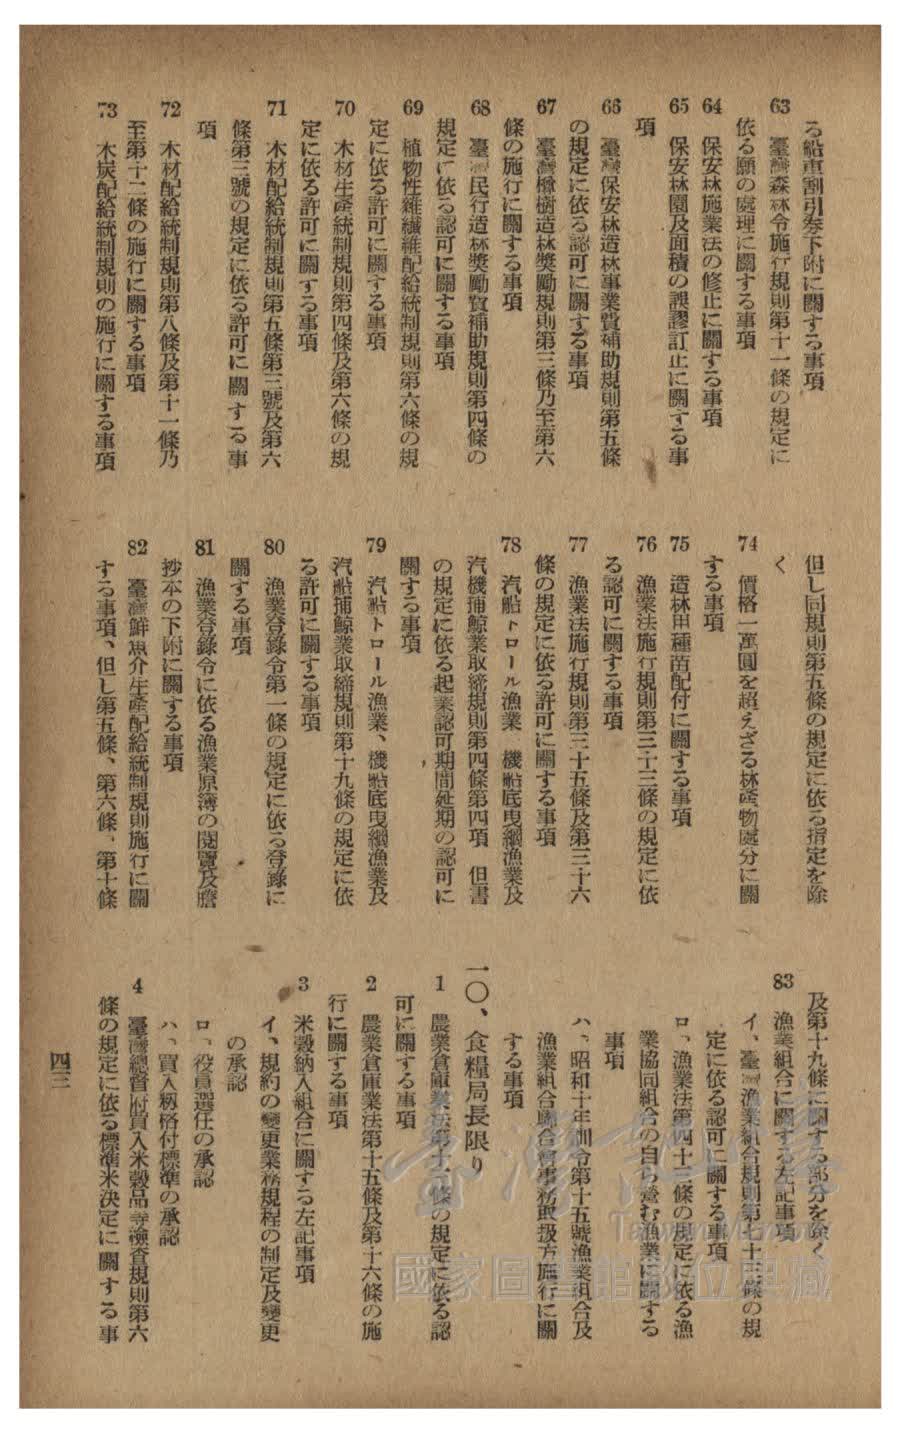 る船車割引券下附に關する事項
63 臺灣森林令施行規則第十一條の規定に
依る願の處理に關する事項
64 保安林施業法の修止に關する事項
65 保安林園及面積の誤謬訂正に關する事
項
66 臺灣保安林造林事業費補助規則第五條
の規定に依る認可に關する事項
67 臺灣樟樹造林獎勵規則第三條乃至第六
條の施行に關する事項
68 臺灣民行造林獎勵費補助規則第四條の
規定に依る認可に關する事項
69 植物性纖維配給統制規則第六條の規
定に依る許可に關する事項
70 木材生產統制規則第四條及第六條の規
定に依る許可に關する事項
71 木材配給統制規則第五條第三號及第六
條第三號の規定に依る許可に關する事
項
72 木材配給統制規則第八條及第十一條乃
至第十二條の施行に關する事項
73 木炭配給統制規則の施行に關する事項
但し同規則第五條の規定に依る指定を除
く
74 價格一萬圓を超えざる林產物處分に關
する事項
75 造林用種苗配付に關する事項
76 漁業法施行規則第三十三條の規定に依
る認可に關する事項
77 漁業法施行規則第三十五條及第三十六
條の規定に依る許可に關する事項
78 汽船トロール漁業、機船底曳網漁業及
汽機捕鯨業取締規則第四條第四項 但書
の規定に依る起業認可期間延期の認可に
關する事項
79 汽船トロール漁業、機船底曳網漁業及
汽船捕鯨業取締規則第十九條の規定に依
る許可に關する事項
80 漁業登錄令第一條の規定に依る登錄に
關する事項
81 漁業登錄令に依る漁業原簿の閱覽及謄
抄本の下附に關する事項
82 臺灣鮮魚介生產配給統制規則施行に關
する事項、但し第五條、第六條、第十條
及第十九條に關する部分を除く
83 漁業組合に關する左記事項
イ、臺灣漁業組合規則第七十三條の規
定に依る認可に關する事項
ロ、漁業法第四十三條の規定に依る漁
業協同組合の自ら營む漁業に關する
事項
ハ、昭和十年訓令第十五號漁業組合及
漁業組合聯合會事務取扱方施行に關
する事項
一〇、食糧局長限り
1 農業倉庫業法第十一條の規定に依る認
可に關する事項
2 農業倉庫業法第十五條及第十六條の施
行に關する事項
3 米穀納入組合に關する左記事項
イ、規約の變更業務規程の制定及變更
の承認
ロ、役員選任の承認
ハ、買入籾格付標準の承認
4 臺灣總督府買入米穀品等檢查規則第六
條の規定に依る標準米決定に關する事
四三
臺灣記憶
Taiwan Memory
國家圖書館數位典藏